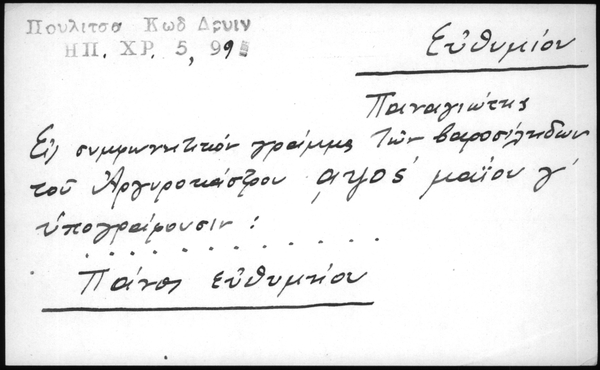 Πουλιτσα Κωδ Δρυιν
ΗΠ. ΧΡ. 5, 99
Εὐθυμίου
Παναγιώτης
Εἰς συμφωνητικόν γράμμα τῶν βαροσιλήδων
τοῦ Ἀργυροκάστρου αψος΄ μαΐου γ΄
ὑπογράφουσιν :
. . . . . . . . . . . .
Πάνος εὐθυμίου